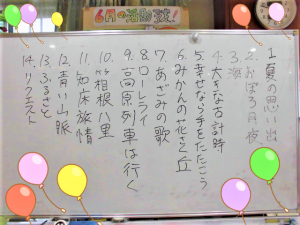 6月の活動予定!
1.夏の思い出
2.おぼろ月夜
3.海
4.大きな古時計
5.幸せなら手をたたこう
6.みかんの花さく丘
7.あざみの歌
8.ローレライ
9.高原列車は行く
10.箱根八里
11.知床旅情
12.青い山脈
13.ふるさと
14.リクエスト